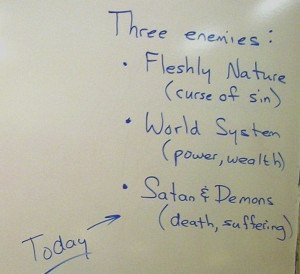 Three enemies:
• Fleshly Nature
(curse of sin)
• World System
(power, wealth)
• Satan & Demons
(death, suffering)
Today